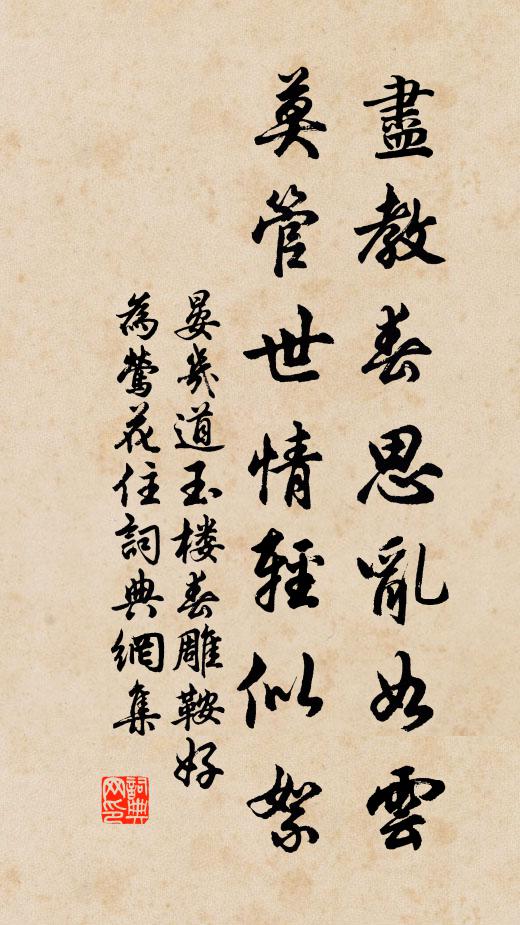 盡教春思亂如雲
莫管世情輕似絮
晏幾道玉楼春雕鞍好
為鶯花住詞典網集
詞典
网印